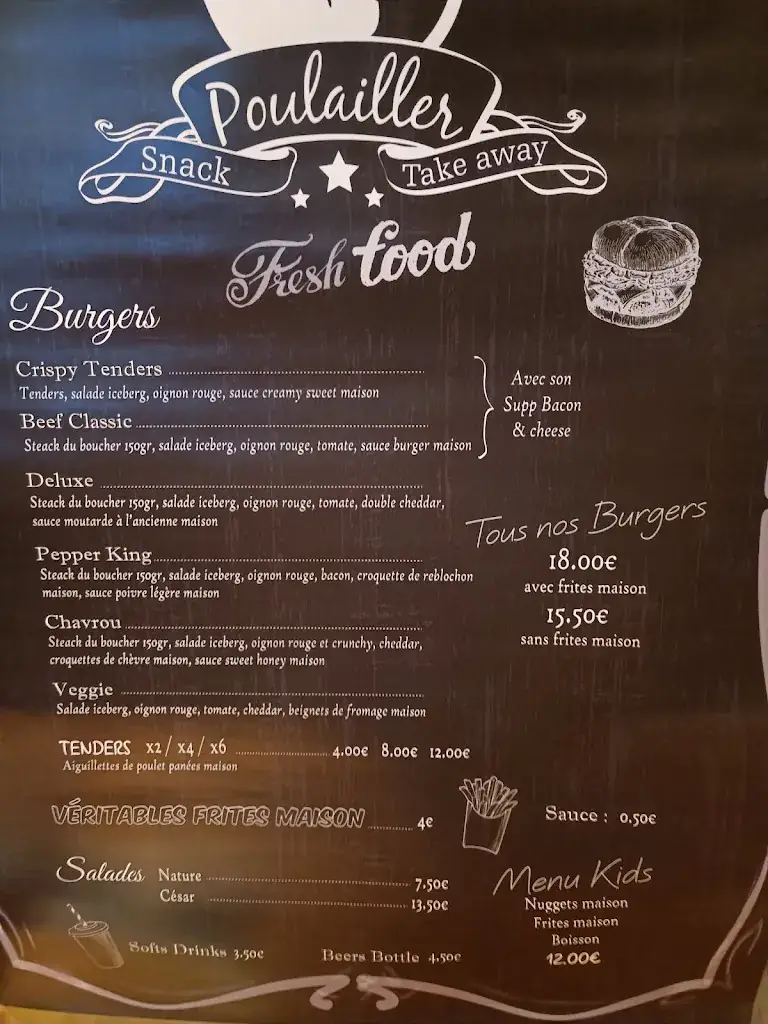 Poulailler
Snack
Take away
Fresh food
Burgers
Crispy Tenders
Tenders, salade iceberg, oignon rouge, sauce creamy sweet maison
Beef Classic
Steack du boucher 150gr, salade iceberg, oignon rouge, tomate, sauce burger maison
Avec son
Supp Bacon
& cheese
Deluxe
Steack du boucher 150gr, salade iceberg, oignon rouge, tomate, double cheddar,
sauce moutarde à l'ancienne maison
Pepper King
Steack du boucher 150gr, salade iceberg, oignon rouge, bacon, croquette de reblochon
maison, sauce poivre légère maison
Chavrou
Steack du boucher 150gr, salade iceberg, oignon rouge et crunchy, cheddar,
croquettes de chèvre maison, sauce sweet honey maison
Veggie
Salade iceberg, oignon rouge, tomate, cheddar, beignets de fromage maison
Tous nos Burgers
18.00€
avec frites maison
15.50€
sans frites maison
TENDERS x2 / x4 / x6 4.00€ 8.00€ 12.00€
Aiguillettes de poulet panées maison
VÉRITABLES FRITES MAISON 4€
Sauce : 0.50€
Salades Nature 7.50€
César 13.50€
Menu Kids
Nuggets maison
Frites maison
Boisson
12.00€
Softs Drinks 3.50€
Beers Bottle 4.50€